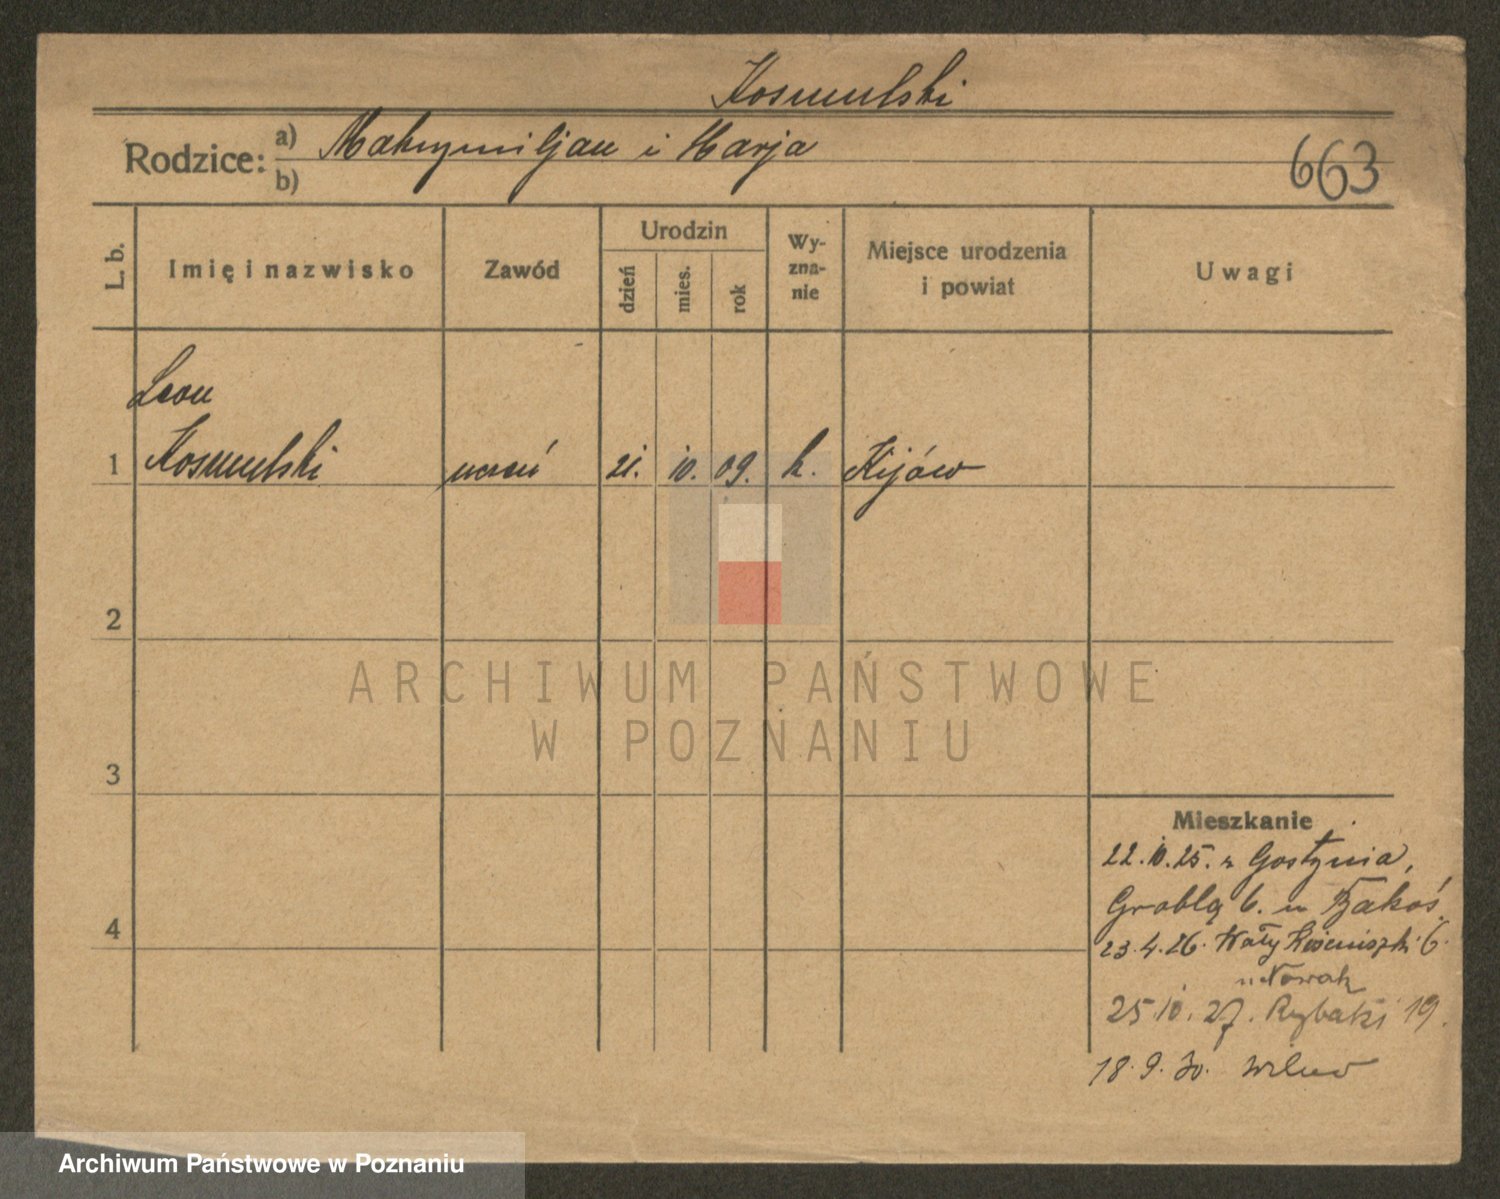 Kosmulski
Rodzice: a) Maksymiljan i Marja
b)
663
L. b.
Imię i nazwisko
Zawód
Urodzin
dzień
mies.
rok
Wy-
zna-
nie
Miejsce urodzenia
i powiat
Uwagi
Leon
1 Kosmulski uczeń 21. 10. 09. k. Kijów
2
3
4
ARCHIWUM PAŃSTWOWE
W POZNANIU
Mieszkanie
22.10.25. z Gostynia,
Groblą 6. u
23.4.26. Wały 6.
u Nowak
25.10.27. Rybaki 19.
18.9.30. Wilno
Archiwum Państwowe w Poznaniu